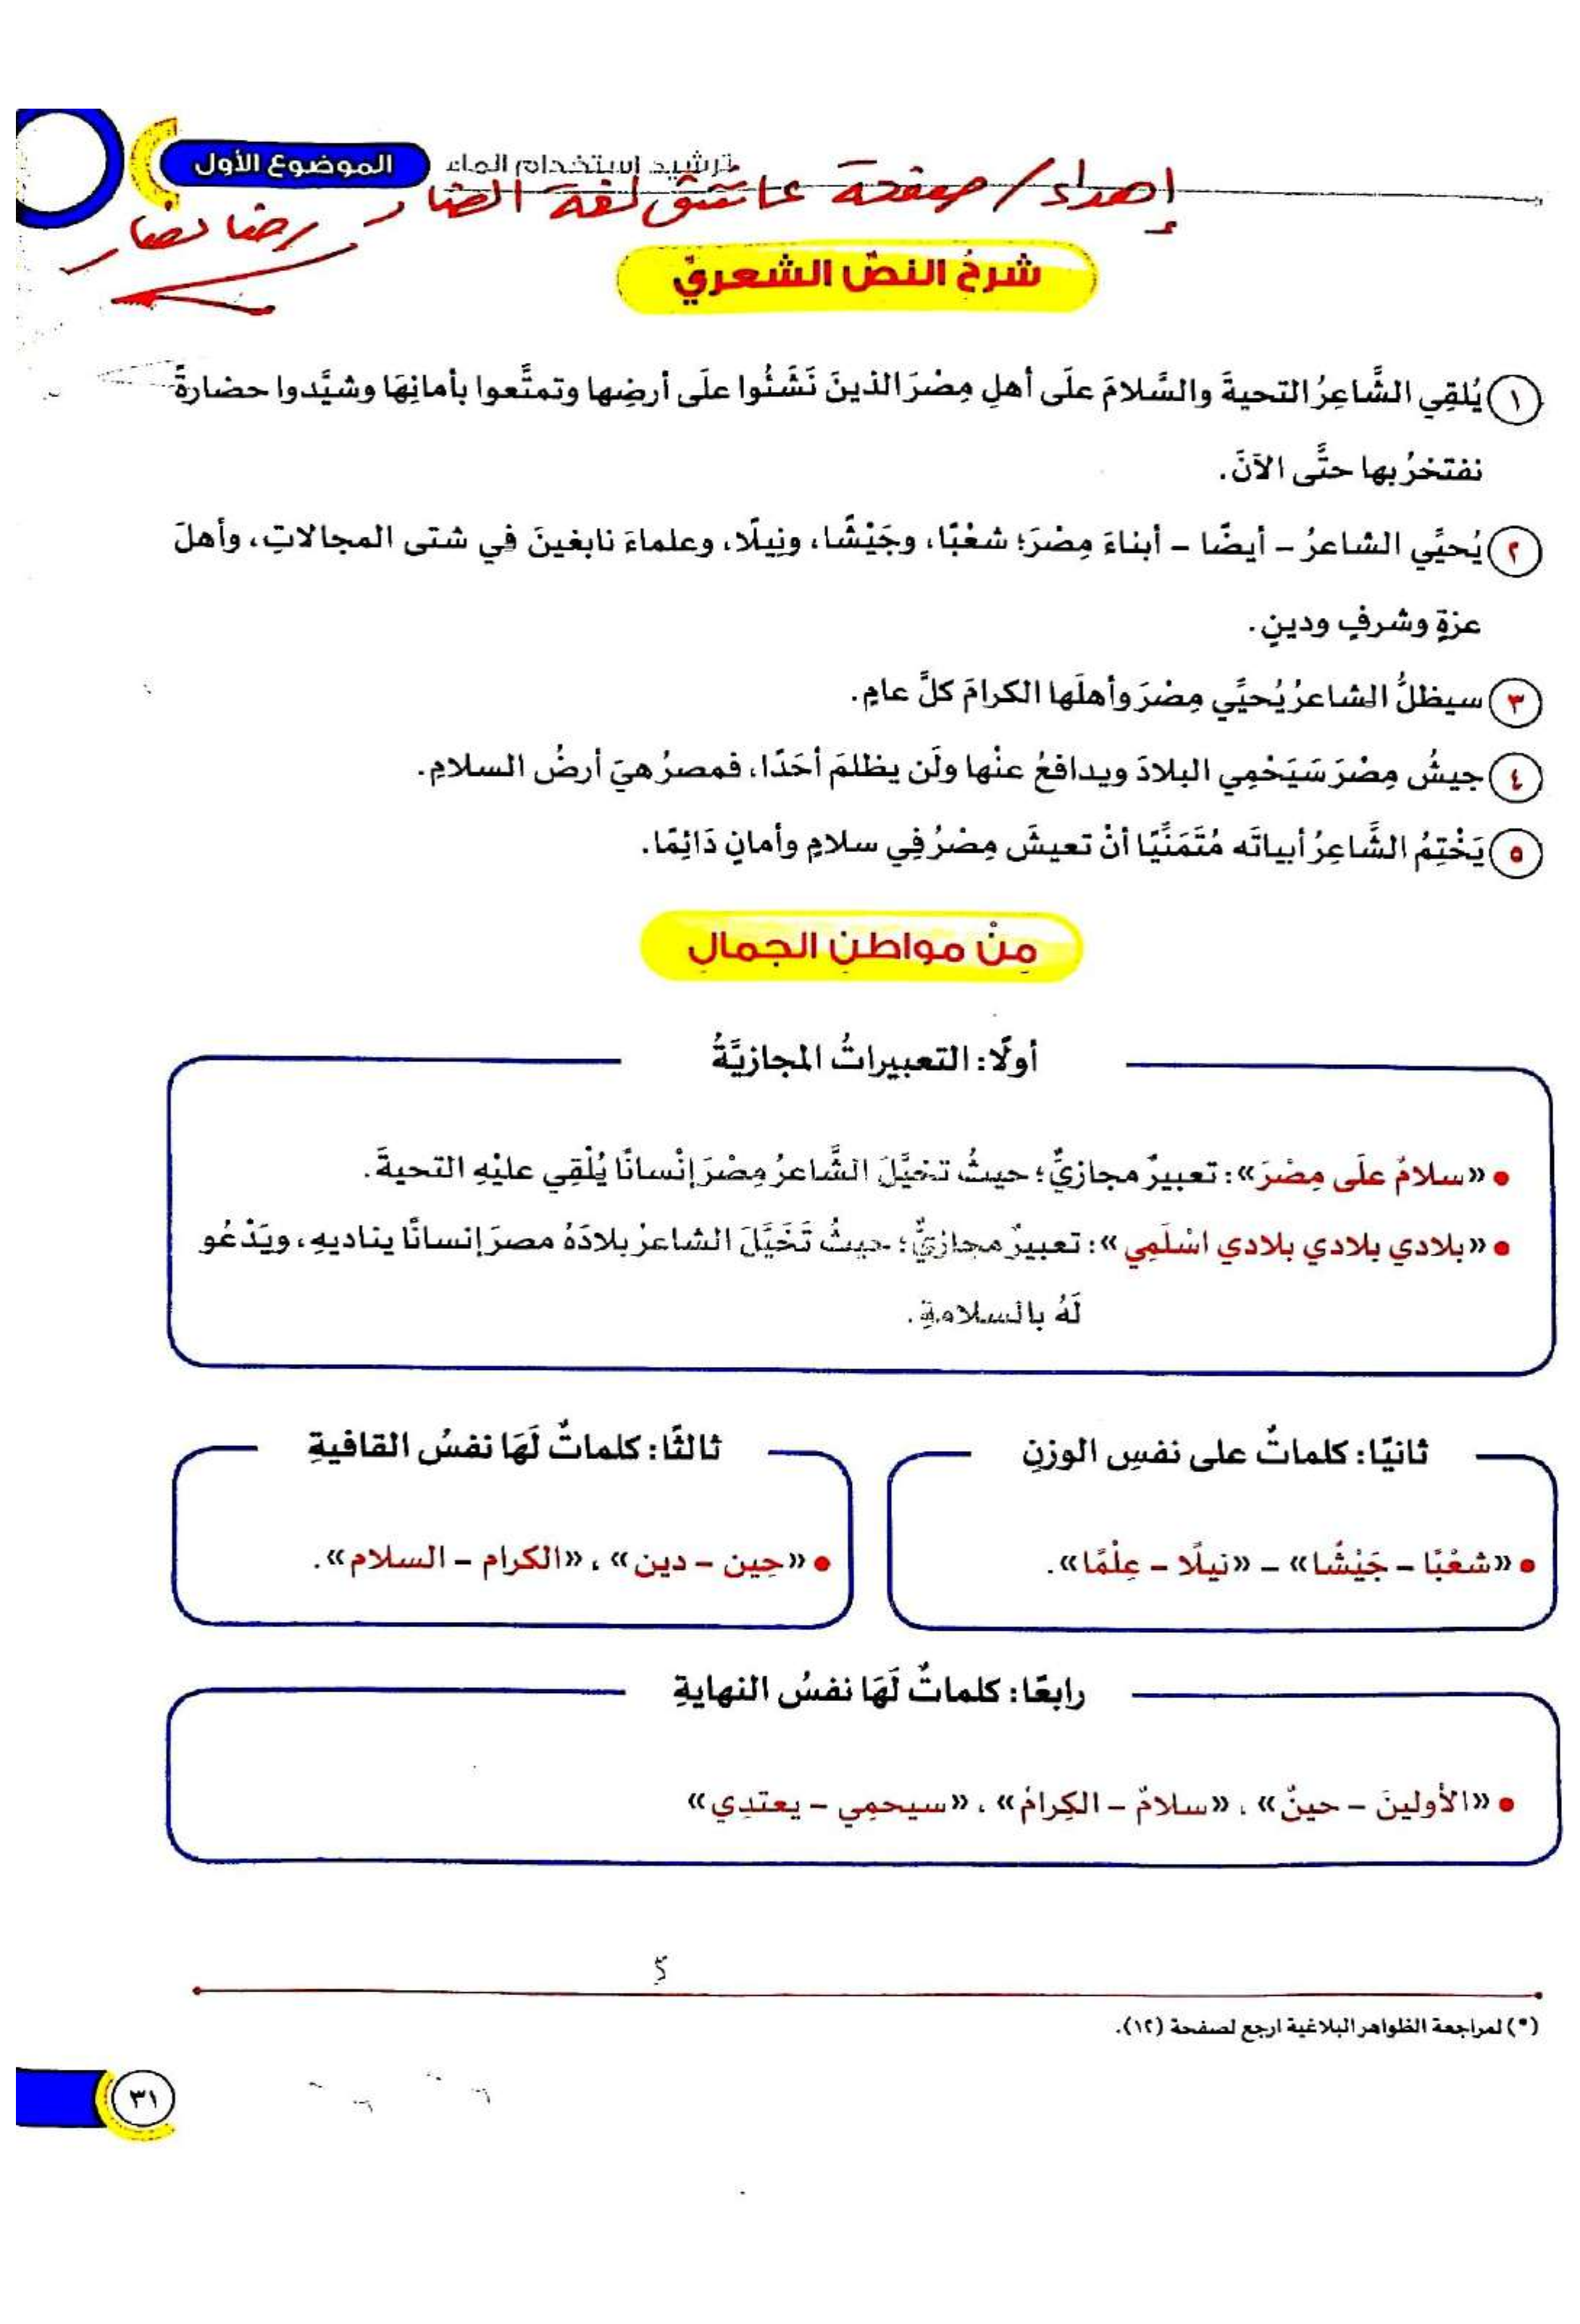 ترشيد استخدام الماء
الموضوع الأول
إهداء / صفحة عاشق لغة الضاد رضا نصار
شرحُ النصِّ الشعريِّ
١ يُلقِي الشَّاعِرُ التحيةَ والسَّلامَ علَى أهلِ مِصْرَ الذينَ نَشَئُوا علَى أرضِها وتمتَّعوا بأمانِهَا وشيَّدوا حضارةً
نفتخرُ بها حتَّى الآنَ.
٢ يُحيِّي الشاعرُ – أيضًا – أبناءَ مِصْرَ؛ شعْبًا، وجَيْشًا، ونِيلًا، وعلماءَ نابغينَ في شتى المجالاتِ، وأهلَ
عزةٍ وشرفٍ ودينٍ.
٣ سيظلُّ الشاعرُ يُحيِّي مِصْرَ وأهلَها الكرامَ كلَّ عامٍ.
٤ جيشُ مِصْرَ سَيَحْمِي البلادَ ويدافعُ عنْها ولَن يظلمَ أحَدًا، فمصرُ هيَ أرضُ السلامِ.
٥ يَخْتِمُ الشَّاعِرُ أبياتَه مُتَمَنِّيًا أنْ تعيشَ مِصْرُ فِي سلامٍ وأمانٍ دَائِمًا.
مِنْ مواطنِ الجمالِ
أولًا: التعبيراتُ المجازيَّةُ
• «سلامٌ علَى مِصْرَ»: تعبيرٌ مجازيٌّ؛ حيثُ تخيَّلَ الشَّاعرُ مِصْرَ إنْسانًا يُلْقِي عليْهِ التحيةَ.
• «بلادي بلادي بلادي اسْلَمِي»: تعبيرٌ مجازيٌّ؛ حيثُ تَخَيَّلَ الشاعرُ بلادَهُ مصرَ إنسانًا يناديهِ، ويَدْعُو
لَهُ بالسلامةِ.
ثانيًا: كلماتٌ على نفسِ الوزنِ
• «شعْبًا – جَيْشًا» – «نيلًا – عِلْمًا».
ثالثًا: كلماتٌ لَهَا نفسُ القافيةِ
• «حِين – دين»، «الكرام – السلام».
رابعًا: كلماتٌ لَهَا نفسُ النهايةِ
• «الأولينَ – حينٌ»، «سلامٌ – الكِرامُ»، «سيحمِي – يعتدِي»
(*) لمراجعة الظواهر البلاغية ارجع لصفحة (١٢).
٣١